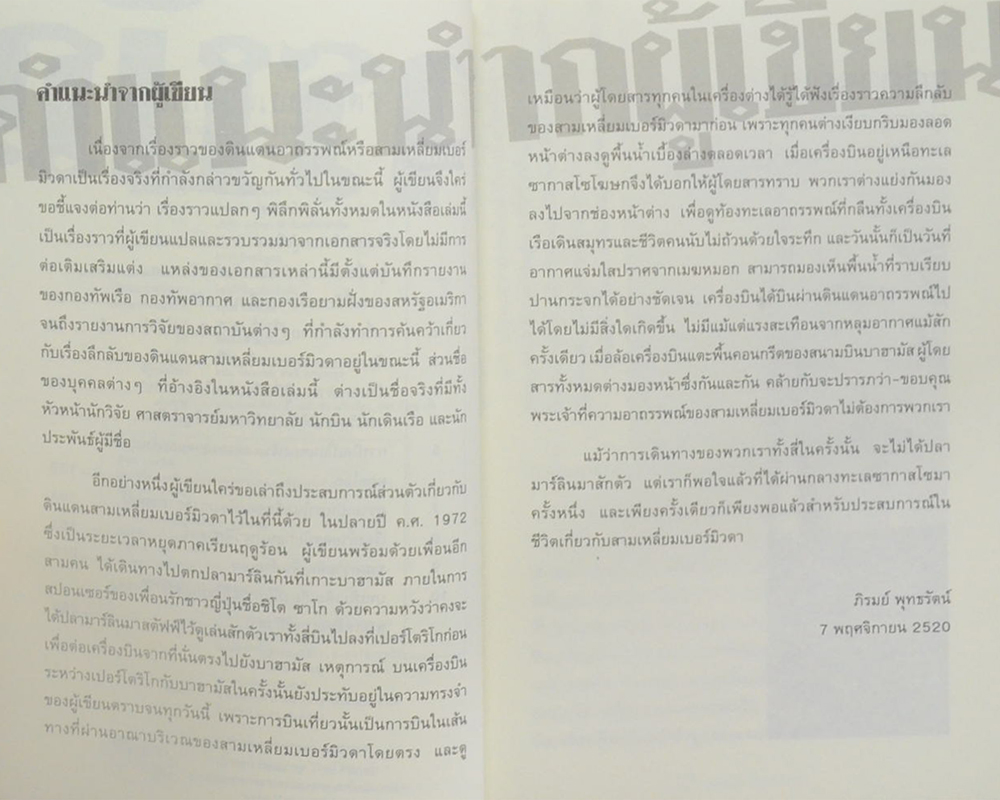 คำแนะนำจากผู้เขียน
คำแนะนำจากผู้เขียน
เนื่องจากเรื่องราวของดินแดนอาถรรพณ์หรือสามเหลี่ยมเบอร์
มิวดาเป็นเรื่องจริงที่กำลังกล่าวขวัญกันทั่วไปในขณะนี้ ผู้เขียนจึงใคร่
ขอชี้แจงต่อท่านว่า เรื่องราวแปลกๆ พิลึกพิลั่นทั้งหมดในหนังสือเล่มนี้
เป็นเรื่องราวที่ผู้เขียนแปลและรวบรวมมาจากเอกสารจริงโดยไม่มีการ
ต่อเติมเสริมแต่ง แหล่งของเอกสารเหล่านี้มีตั้งแต่บันทึกรายงาน
ของกองทัพเรือ กองทัพอากาศ และกองเรือยามฝั่งของสหรัฐอเมริกา
จนถึงรายงานการวิจัยของสถาบันต่างๆ ที่กำลังทำการค้นคว้าเกี่ยว
กับเรื่องลึกลับของดินแดนสามเหลี่ยมเบอร์มิวดาอยู่ในขณะนี้ ส่วนชื่อ
ของบุคคลต่างๆ ที่อ้างอิงในหนังสือเล่มนี้ ต่างเป็นชื่อจริงที่มีทั้ง
หัวหน้านักวิจัย ศาสตราจารย์มหาวิทยาลัย นักบิน นักเดินเรือ และนัก
ประพันธ์ผู้มีชื่อ
อีกอย่างหนึ่งผู้เขียนใคร่ขอเล่าถึงประสบการณ์ส่วนตัวเกี่ยวกับ
ดินแดนสามเหลี่ยมเบอร์มิวดาไว้ในที่นี้ด้วย ในปลายปี ค.ศ. 1972
ซึ่งเป็นระยะเวลาหยุดภาคเรียนฤดูร้อน ผู้เขียนพร้อมด้วยเพื่อนอีก
สามคน ได้เดินทางไปตกปลามาร์ลินกันที่เกาะบาฮามัส ภายในการ
สปอนเซอร์ของเพื่อนรักชาวญี่ปุ่นชื่อชิโต ซาโก ด้วยความหวังว่าคงจะ
ได้ปลามาร์ลินมาสตัฟฟ์ไว้ดูเล่นสักตัวเราทั้งสี่บินไปลงที่เปอร์โตริโกก่อน
เพื่อต่อเครื่องบินจากที่นั่นตรงไปยังบาฮามัส เหตุการณ์ บนเครื่องบิน
ระหว่างเปอร์โตริโกกับบาฮามัสในครั้งนั้นยังประทับอยู่ในความทรงจำ
ของผู้เขียนตราบจนทุกวันนี้ เพราะการบินเที่ยวนั้นเป็นการบินในเส้น
ทางที่ผ่านอาณาบริเวณของสามเหลี่ยมเบอร์มิวดาโดยตรง และดู
เหมือนว่าผู้โดยสารทุกคนในเครื่องต่างได้รู้ได้ฟังเรื่องราวความลึกลับ
ของสามเหลี่ยมเบอร์มิวดามาก่อน เพราะทุกคนต่างเงียบกริบมองลอด
หน้าต่างลงดูพื้นน้ำเบื้องล่างตลอดเวลา เมื่อเครื่องบินอยู่เหนือทะเล
ซากาสโซโฆษกจึงได้บอกให้ผู้โดยสารทราบ พวกเราต่างแย่งกันมอง
ลงไปจากช่องหน้าต่าง เพื่อดูท้องทะเลอาถรรพณ์ที่กลืนทั้งเครื่องบิน
เรือเดินสมุทรและชีวิตคนนับไม่ถ้วนด้วยใจระทึก และวันนั้นก็เป็นวันที่
อากาศแจ่มใสปราศจากเมฆหมอก สามารถมองเห็นพื้นน้ำที่ราบเรียบ
ปานกระจกได้อย่างชัดเจน เครื่องบินได้บินผ่านดินแดนอาถรรพณ์ไป
ได้โดยไม่มีสิ่งใดเกิดขึ้น ไม่มีแม้แต่แรงสะเทือนจากหลุมอากาศแม้สัก
ครั้งเดียว เมื่อล้อเครื่องบินแตะพื้นคอนกรีตของสนามบินบาฮามัส ผู้โดย
สารทั้งหมดต่างมองหน้าซึ่งกันและกัน คล้ายกับจะปรารภว่า-ขอบคุณ
พระเจ้าที่ความอาถรรพณ์ของสามเหลี่ยมเบอร์มิวดาไม่ต้องการพวกเรา
แม้ว่าการเดินทางของพวกเราทั้งสี่ในครั้งนั้น จะไม่ได้ปลา
มาร์ลินมาสักตัว แต่เราก็พอใจแล้วที่ได้ผ่านกลางทะเลซากาสโซมา
ครั้งหนึ่ง และเพียงครั้งเดียวก็เพียงพอแล้วสำหรับประสบการณ์ใน
ชีวิตเกี่ยวกับสามเหลี่ยมเบอร์มิวดา
ภิรมย์ พุทธรัตน์
7 พฤศจิกายน 2520